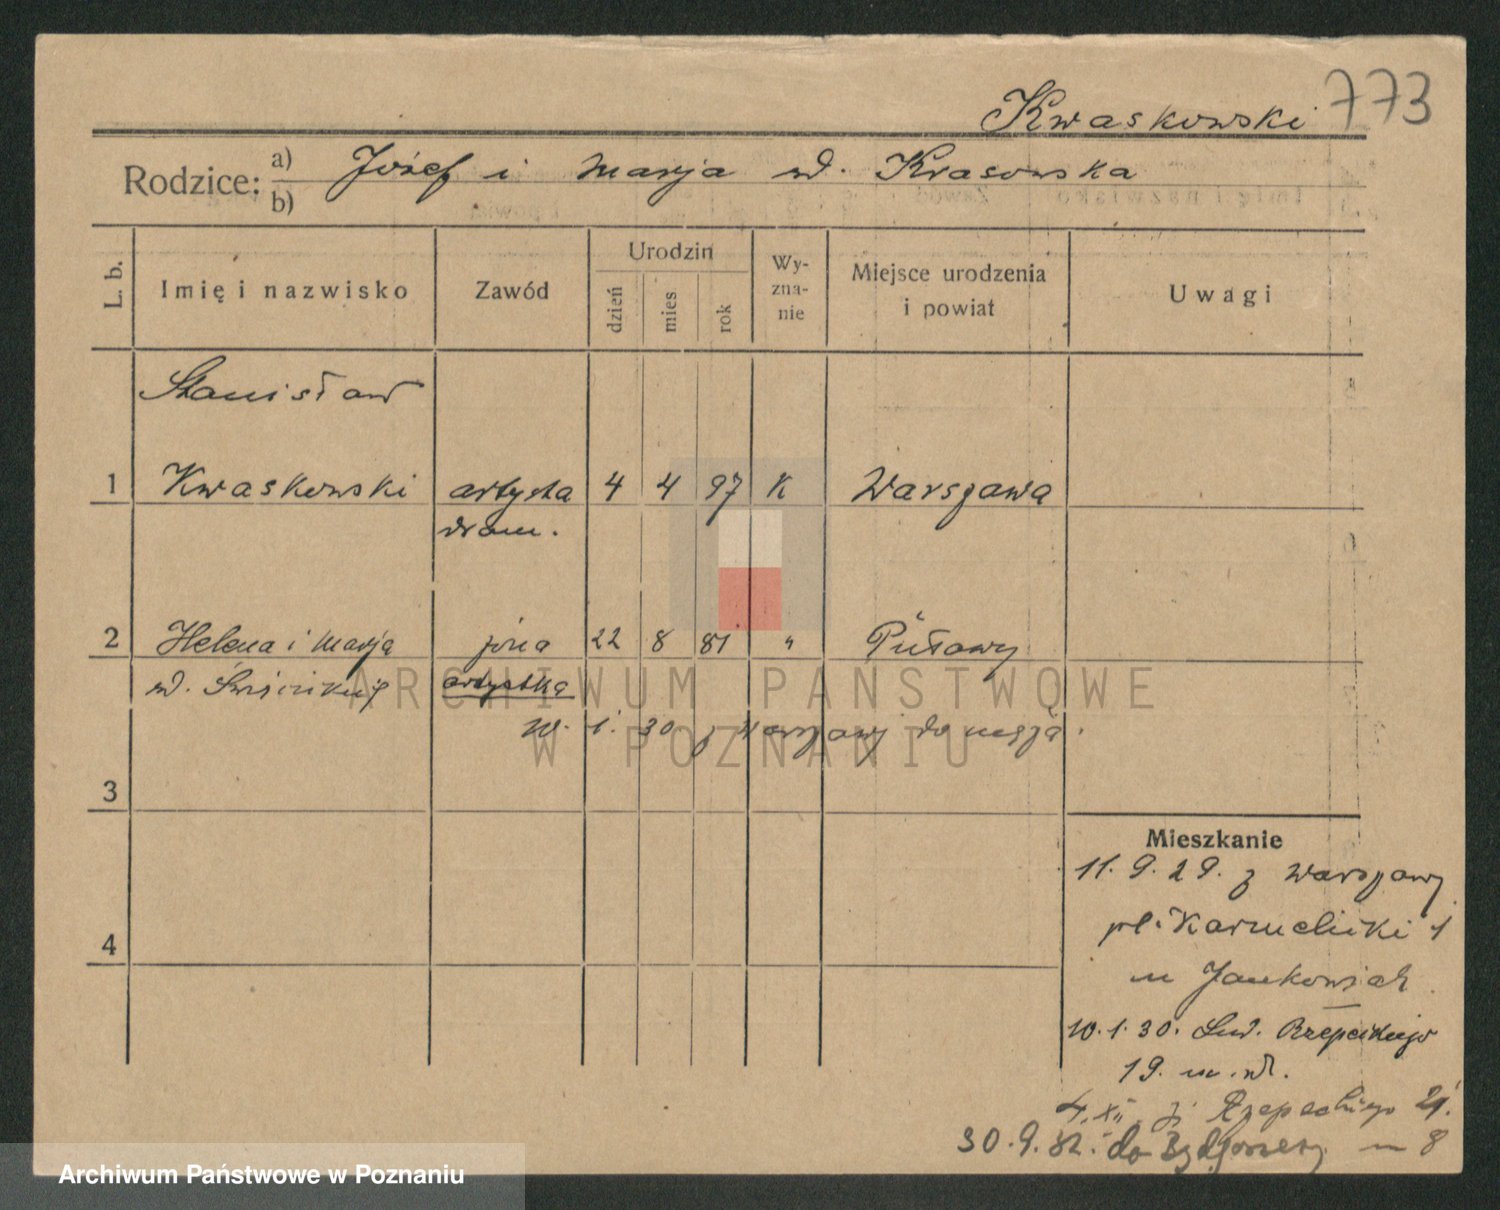 Kwaskowski 773
Rodzice: a) Józef i Marja ur. Krasowska
b)
L. b. Imię i nazwisko Zawód Urodzin dzień mies rok Wy-zna-nie Miejsce urodzenia i powiat Uwagi
Stanisław
1 Kwaskowski artysta 4 4 97 K Warszawa
dram.
2 Helena i Marja żona 22 8 81 " Puławy
ur. artystka
10. 1. 30 z Warszawy do męża.
3
Mieszkanie
11. 9. 29. z Warszawy
4 pl. Karmelicki 1
u Jankowiak
10. 1. 30. Lud. Rzepeckiego
19. m. wł.
4. XII Rzepeckiego 21.
30. 9. 32. do Bydgoszczy m 8
ARCHIWUM PAŃSTWOWE
W POZNANIU
Archiwum Państwowe w Poznaniu